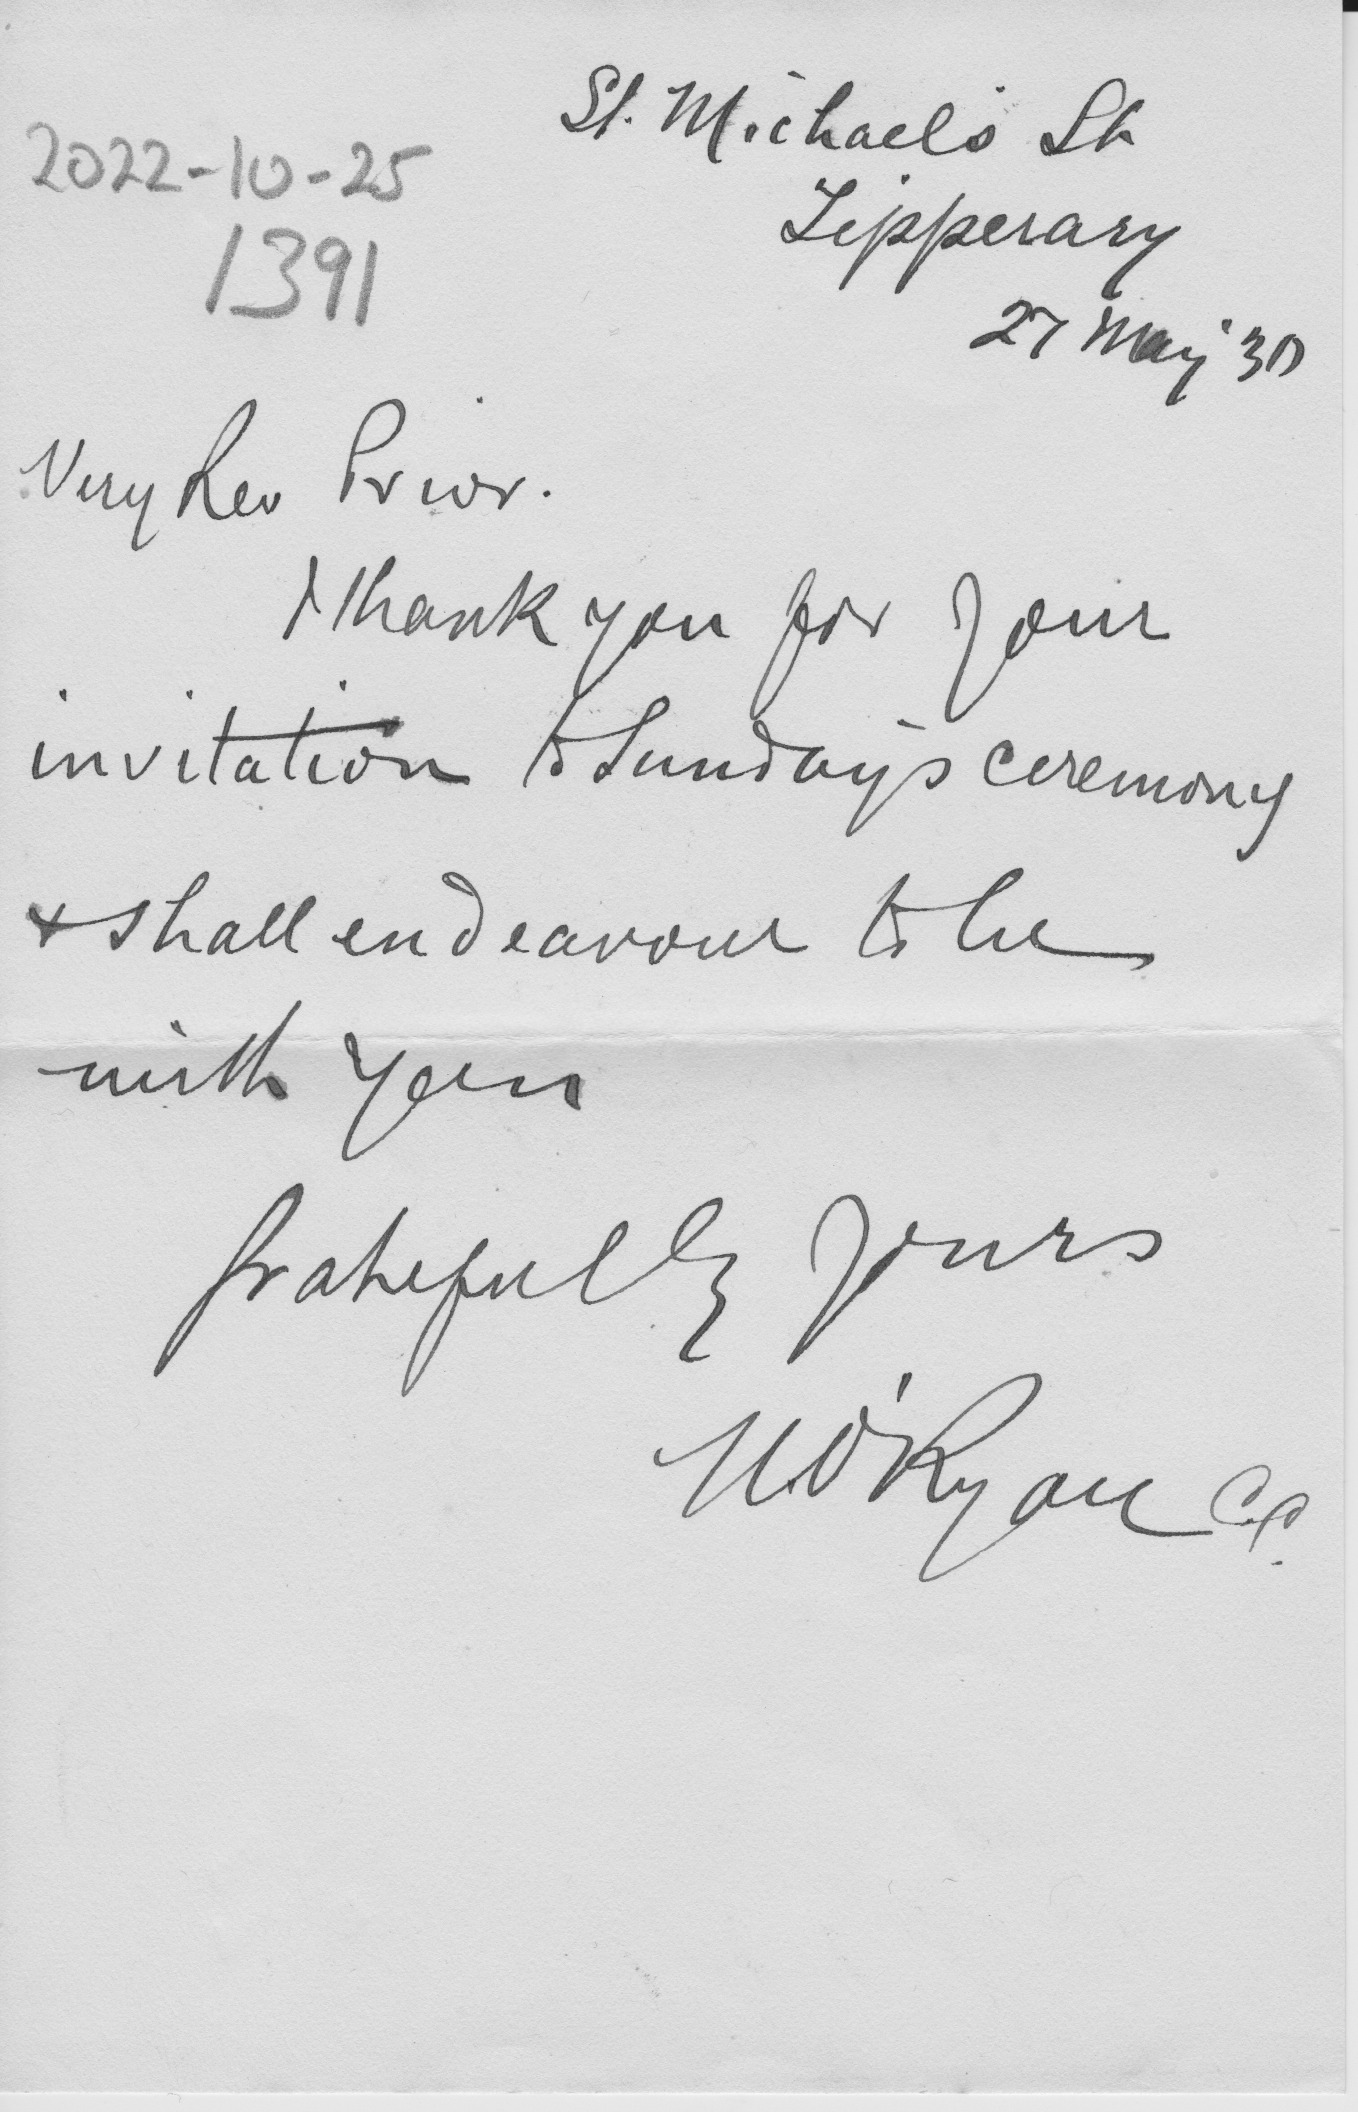 St. Michael's St
Tipperary
27 May '30
2022-10-25
1391
Very Rev Prior.
I thank you for your
invitation to Sunday's ceremony
& shall endeavour to be
with you
Gratefully yours
M. O'Ryan CC.